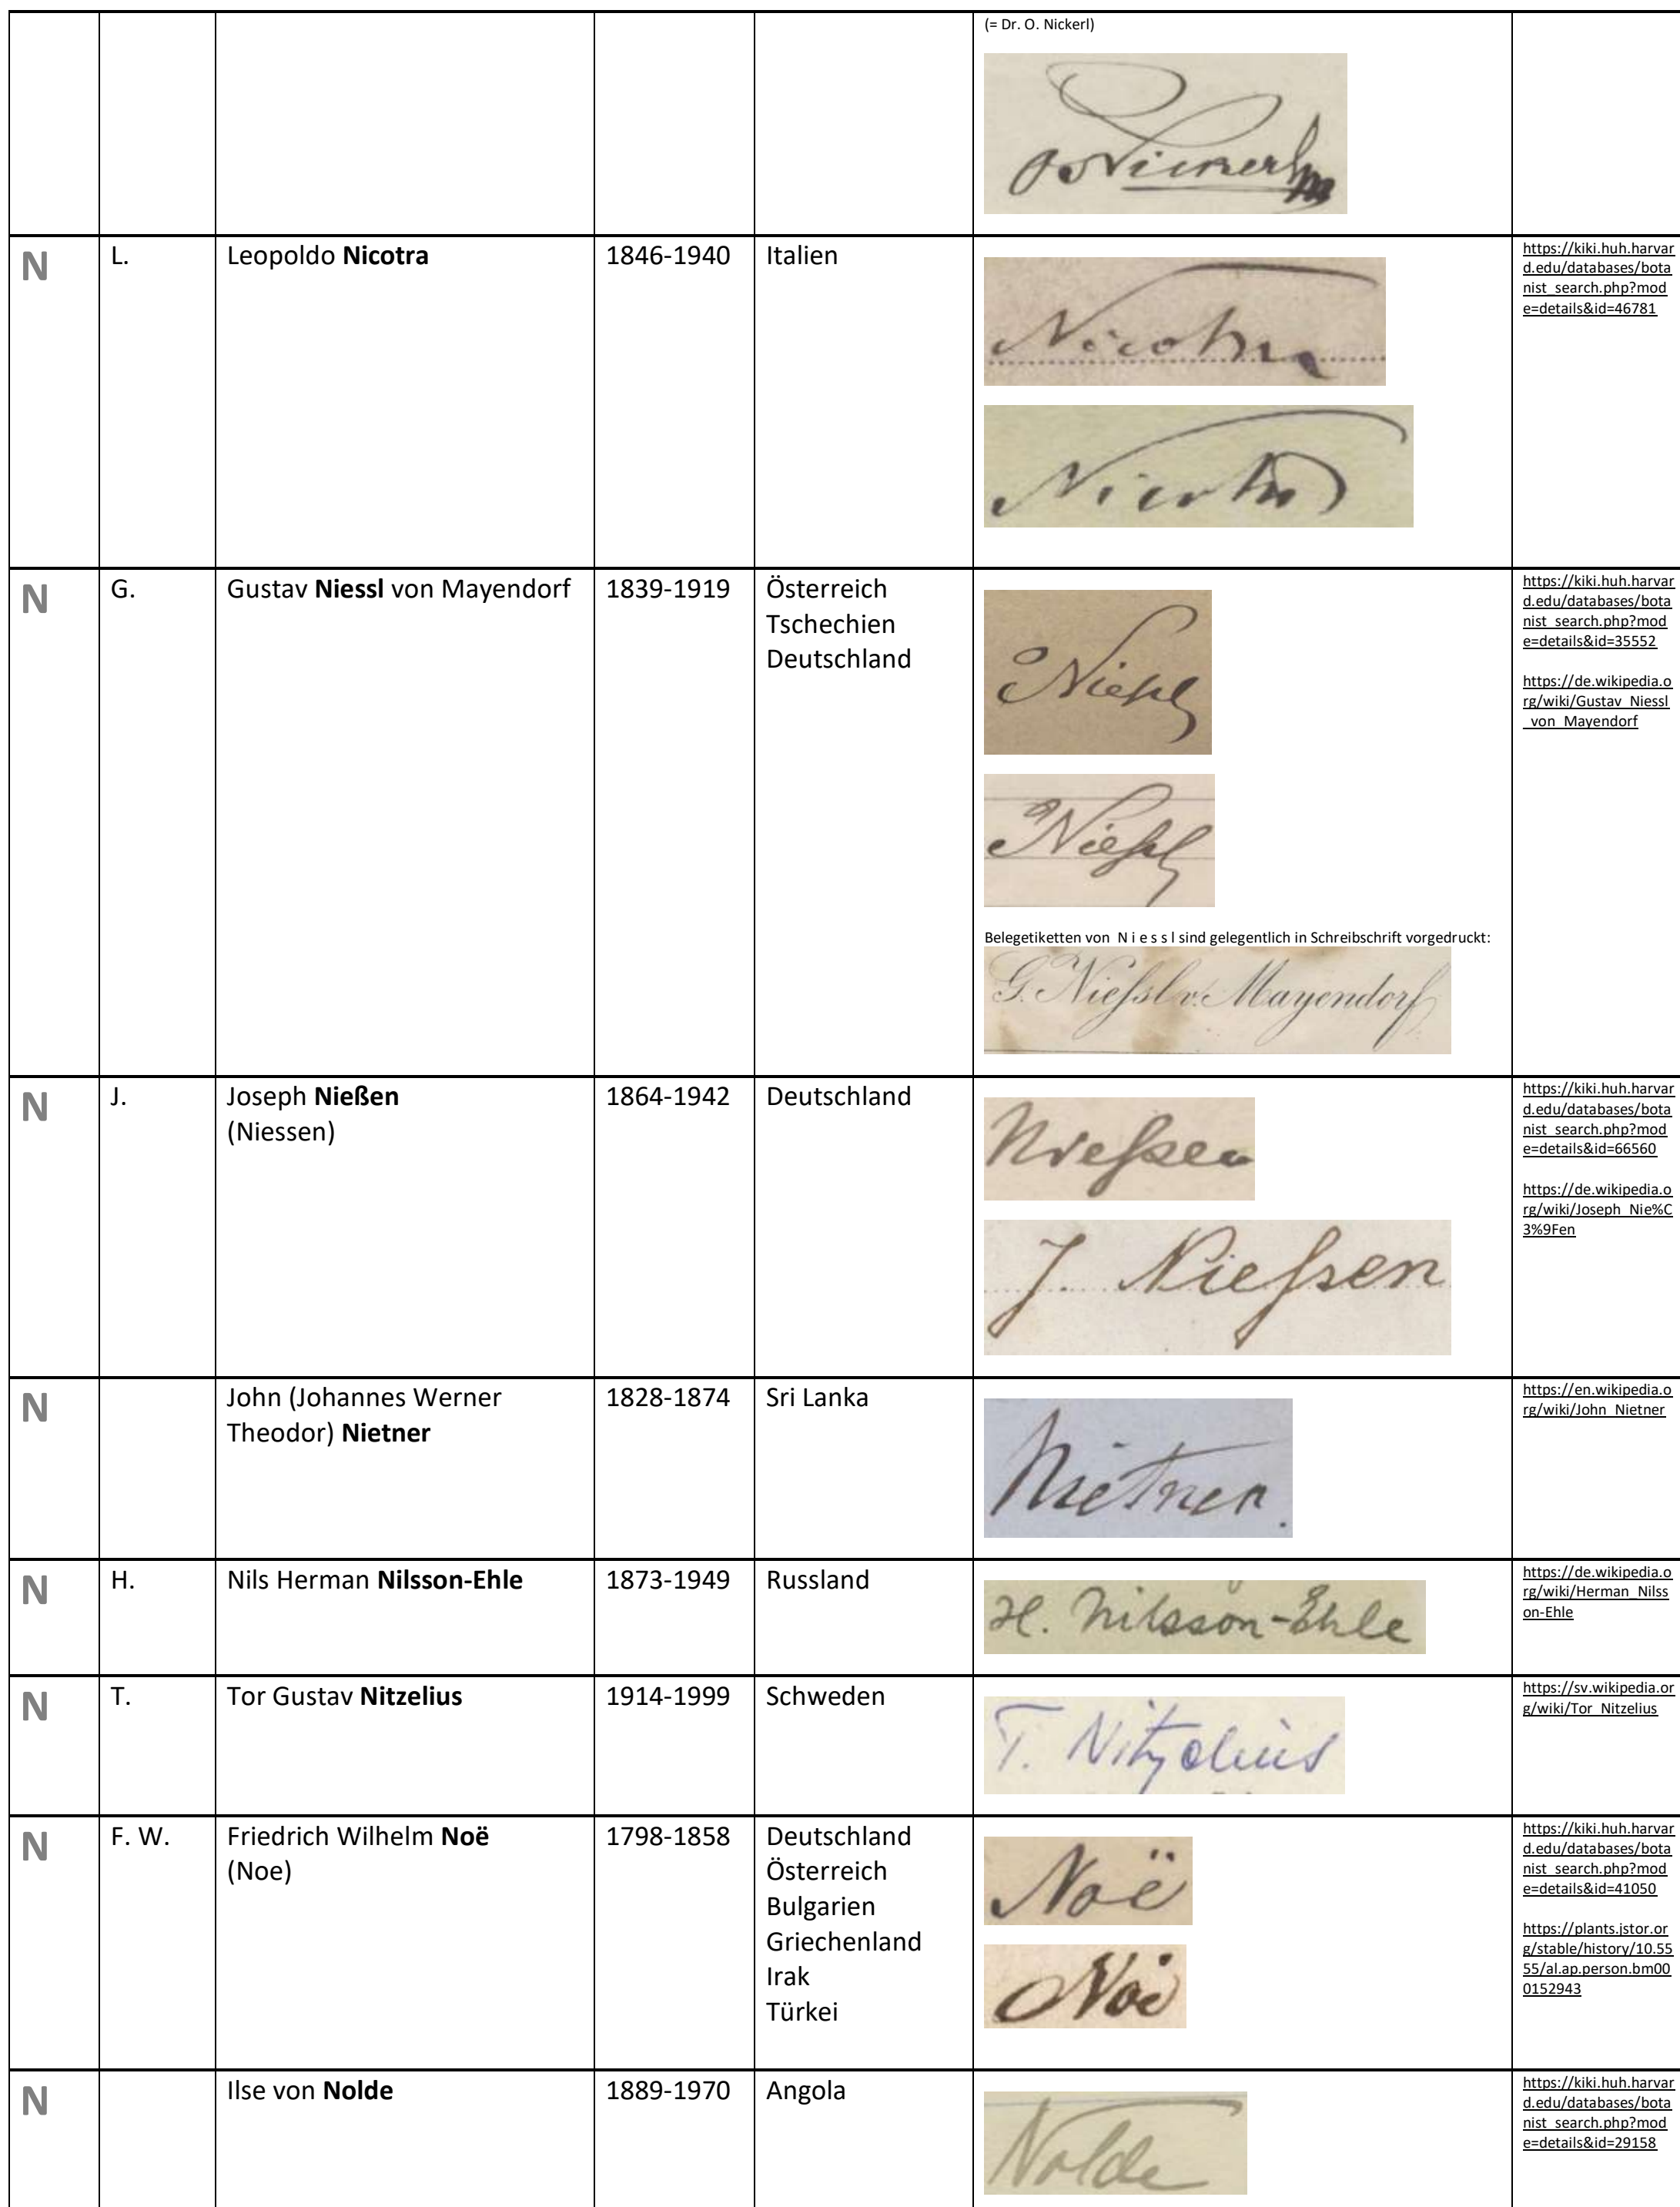 (= Dr. O. Nickerl)
O Nickerl
N
L.
Leopoldo Nicotra
1846-1940
Italien
Nicotra
Nicotra
https://kiki.huh.harvar
d.edu/databases/bota
nist_search.php?mod
e=details&id=46781
N
G.
Gustav Niessl von Mayendorf
1839-1919
Österreich
Tschechien
Deutschland
Niessl
Niessl
Belegetiketten von N i e s s l sind gelegentlich in Schreibschrift vorgedruckt:
G. Niessl v. Mayendorf
https://kiki.huh.harvar
d.edu/databases/bota
nist_search.php?mod
e=details&id=35552
https://de.wikipedia.o
rg/wiki/Gustav_Niessl
_von_Mayendorf
N
J.
Joseph Nießen
(Niessen)
1864-1942
Deutschland
Niessen
J. Niessen
https://kiki.huh.harvar
d.edu/databases/bota
nist_search.php?mod
e=details&id=66560
https://de.wikipedia.o
rg/wiki/Joseph_Nie%C
3%9Fen
N
John (Johannes Werner
Theodor) Nietner
1828-1874
Sri Lanka
Nietner.
https://en.wikipedia.o
rg/wiki/John_Nietner
N
H.
Nils Herman Nilsson-Ehle
1873-1949
Russland
H. Nilsson-Ehle
https://de.wikipedia.o
rg/wiki/Herman_Nilss
on-Ehle
N
T.
Tor Gustav Nitzelius
1914-1999
Schweden
T. Nitzelius
https://sv.wikipedia.or
g/wiki/Tor_Nitzelius
N
F. W.
Friedrich Wilhelm Noë
(Noe)
1798-1858
Deutschland
Österreich
Bulgarien
Griechenland
Irak
Türkei
Noë
Noë
https://kiki.huh.harvar
d.edu/databases/bota
nist_search.php?mod
e=details&id=41050
https://plants.jstor.or
g/stable/history/10.55
55/al.ap.person.bm00
0152943
N
Ilse von Nolde
1889-1970
Angola
Nolde
https://kiki.huh.harvar
d.edu/databases/bota
nist_search.php?mod
e=details&id=29158